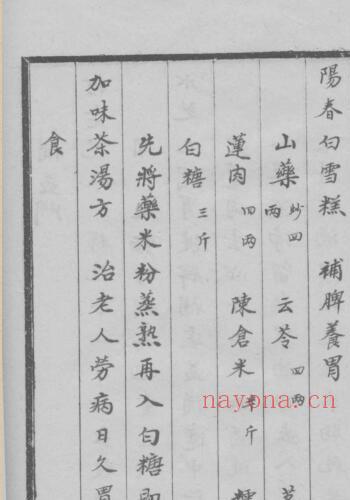 陽春白雪糕 補脾養胃
山藥炒四兩 云苓四兩
蓮肉四兩 陳倉米半斤
白糖三斤
先將藥米粉蒸熟再入白糖即
加味茶湯方 治老人劳病日久胃
食
nayona.cn